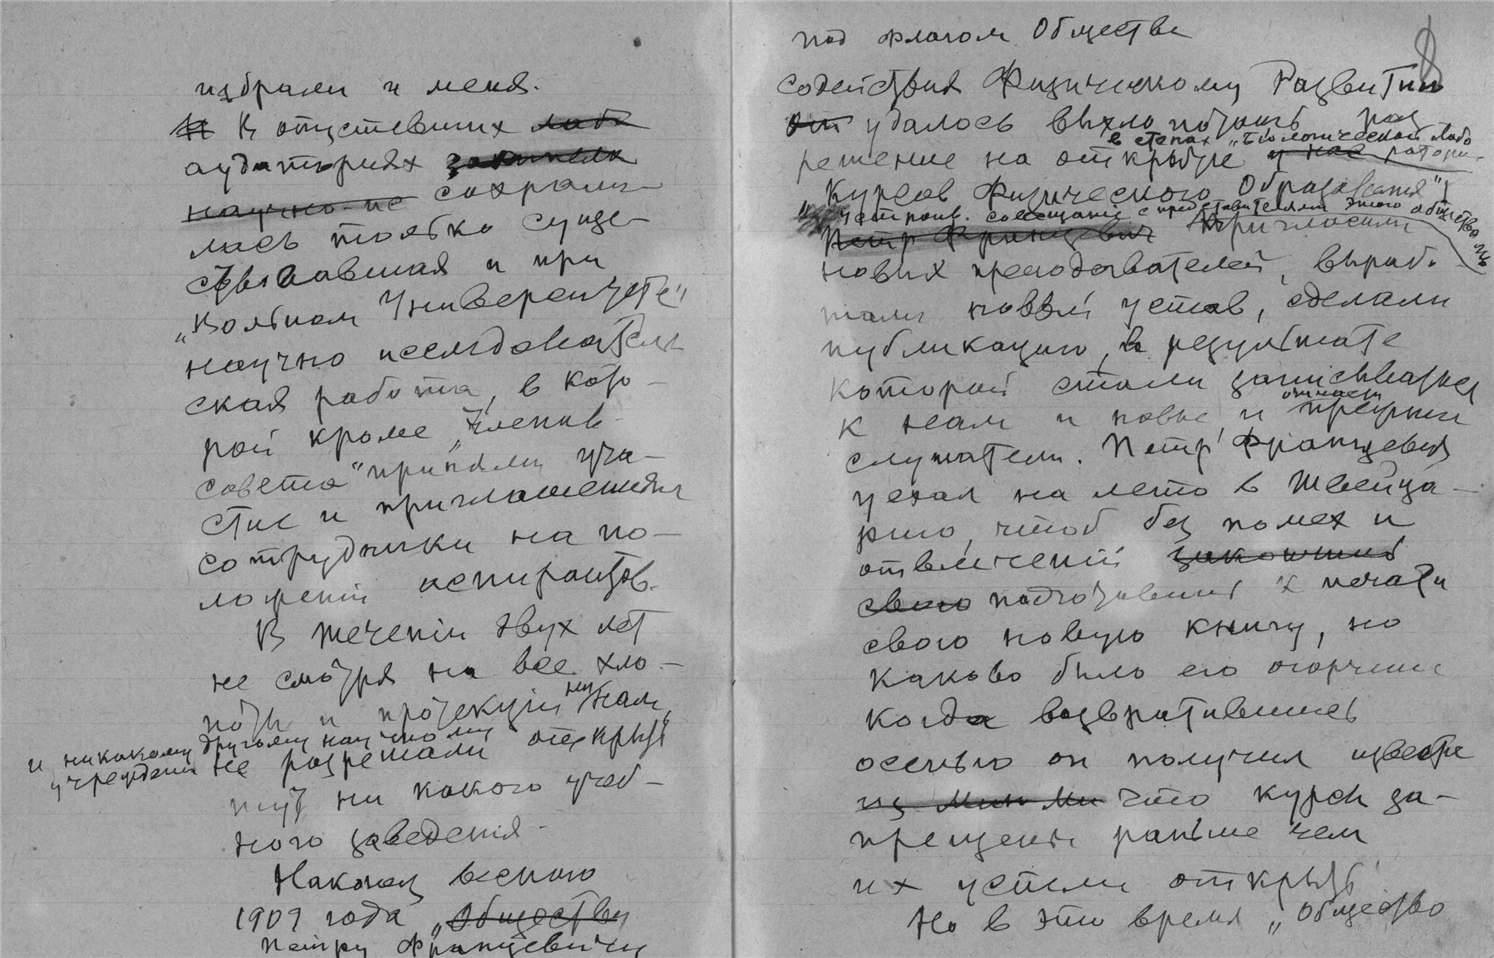 избрали и меня.
В опустевших
аудиториях
научно-ис сохрани-
лась только суще-
ствовавшая и при
„Вольном Университете"
научно исследователь
ская работа, в кото-
рой кроме „членов
совета" приняли уча-
стие и приглашенные
сотрудники на по-
ложении аспирантов.
В течении двух лет
не смотря на все хло-
поты и протекции ни нам,
и никакому другому научному
учреждению не разрешали открыть
тут ни какого учеб-
ного заведения.
Наконец весною
1909 года „Обществу
Петру Францевичу
8
под флагом Общества
содействия Физическому Развитию
удалось выхлопотать раз
в стенах „Биологической Лабо
решение на открытие у нас ратори-
„Курсов Физического Образования"
совещание с представителями этого общества
Петр Францевич Пригласили
новых преподавателей, вырабо
тали новый устав, сделали
публикацию, в результате
которой стали записываться
отчасти
к нам и новые и прежние
слушатели. Петр Францевич
уехал на лето в Швейца-
рию, чтоб без помех и
отвлечений закончить
свою подготовить к печати
свою новую книгу, но
каково было его огорчение
когда возвратившись
осенью он получил известие
из Мин Ми что курсы за-
прещены раньше чем
их успели открыть
Но в это время „Общество